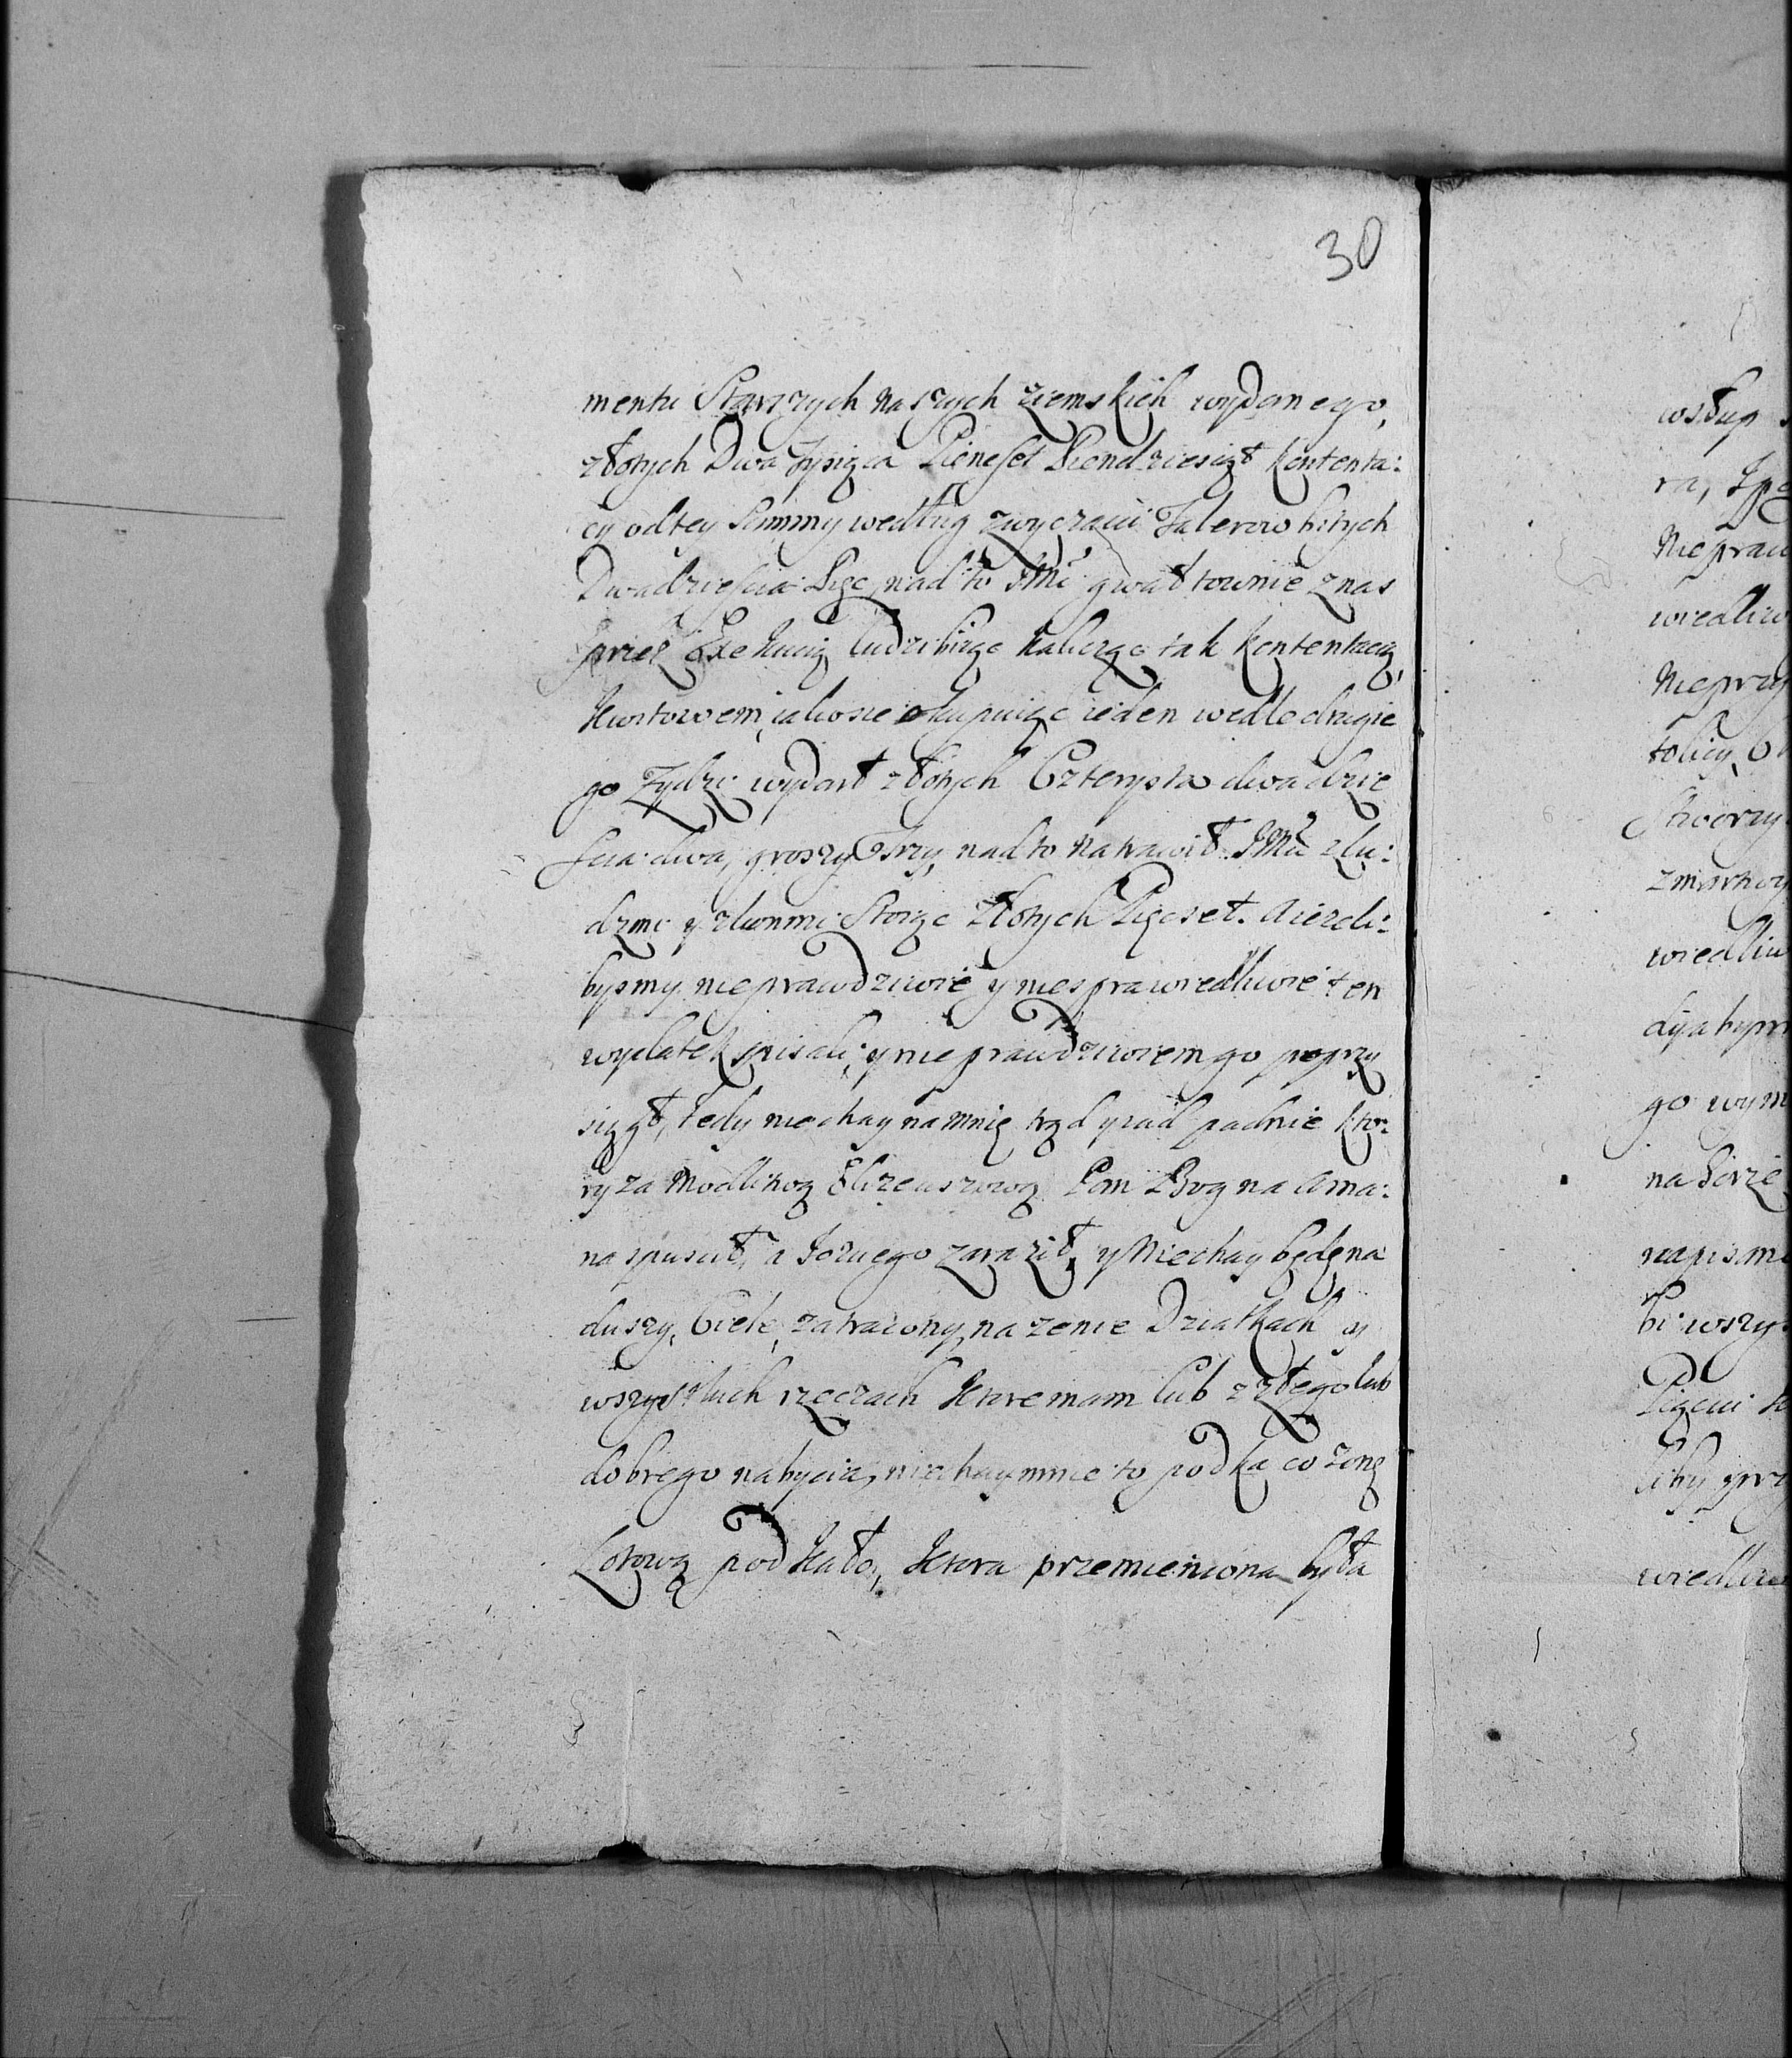 30
mentu Starszych naszych ziemskich wydanego,
złotych Dwa tysiąca Piencset Piendziesiąt kontenta:
cy od tey Summy według zwyczaiu Talerow bitych
Dwadziescia Pięc, nad to IMć gwałtownie z nas
przez Exekucią ludzi biiąc kalicząc tak kontentacią
Kwitowem, iako sie okupuiąc ieden wedle drugie
go Zydzi wydart złotych Czterysta dwadzie
scia dwa, groszy Trzy, nadto natrawił IMć z lu:
dzmi y z konmi stoiąc złotych Pięcset. A iezeli:
bysmy nieprawdziwie y niesprawiedliwie ten
wydatek spisali, y nieprawdziwiem go poprzy
siągł, tedy niechay na mnie trąd y rad padnie kto:
ry za modlitwą Elizeuszową Pan Bog na Ama:
na spuscił, a Iezuego zaraził, y Niechay będę na
duszy, Ciele, zatracony, na zenie Dziatkach y
wszystkich rzeczach ktore mam lub z złego lub
dobrego nabycia, niechay mnie to podka co zonę
Lotową podkało, ktora przemieniona była
wsłup
ra,
Niepraw
wiedliw
Nieprzy
Stworzy
zmartwy
wiedliw
go wym
na
napisme
bi wszys
wiedliw